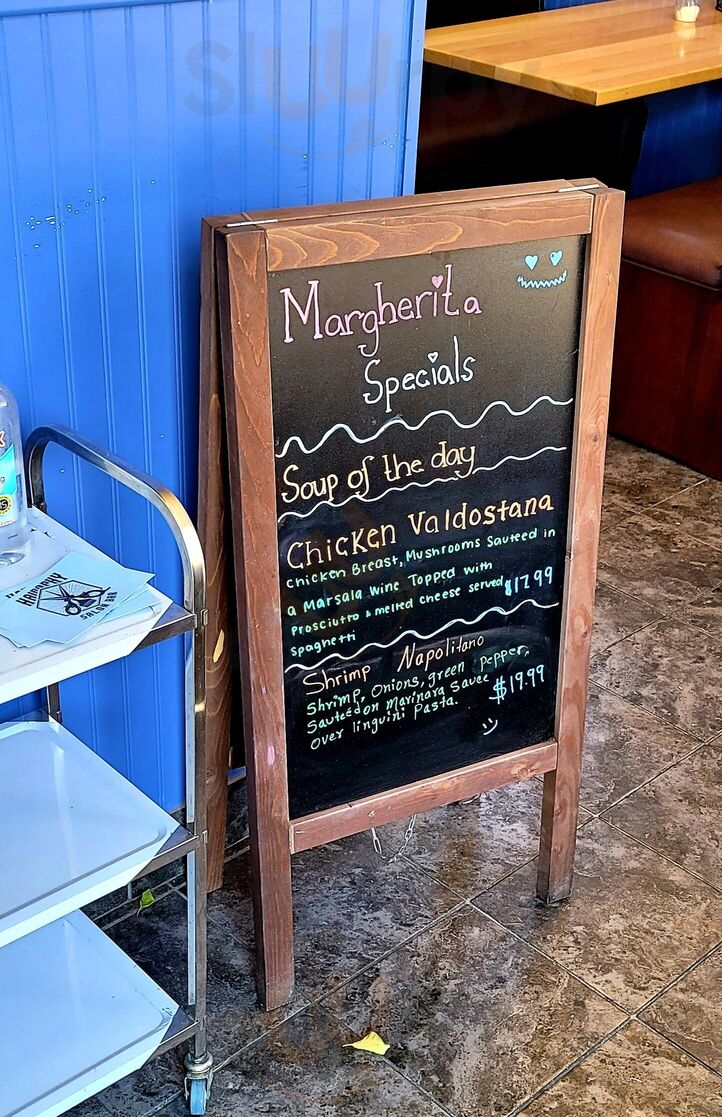 Sluurpy
Margherita
Specials
Soup of the day
Chicken Valdostana
Chicken Breast, Mushrooms Sauteed in
a Marsala wine Topped with
Prosciutto & melted cheese served $17.99
spaghetti
Shrimp Napolitano
Shrimp, Onions, green pepper,
Sauteed on Marinara Sauce $19.99
over linguini Pasta.